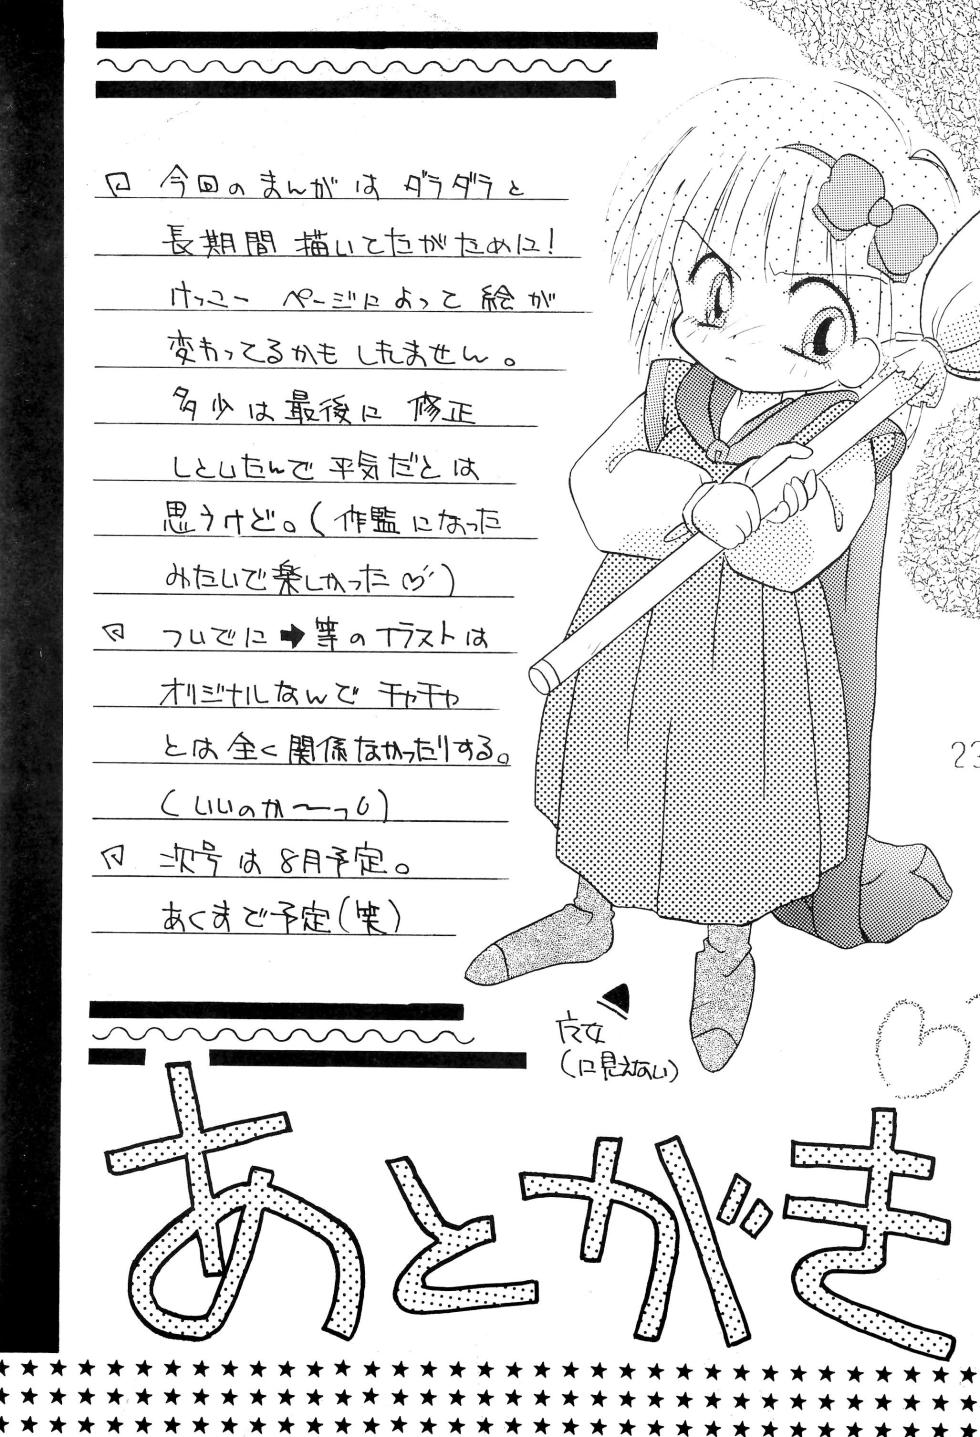 今回のまんがは ダラダラと
長期間 描いてたがために!
けっこー ページによって 絵が
変わってるかもしれません。
多少は最後に 修正
しとしたんで 平気だとは
思うけど。(作監になった
みたいで楽しかった♡)
ついでに➡等のイラストは
オリジナルなんで チャチャ
とは 全く 関係なかったりする。
(いいのか〜っ)
次号は 8月予定。
あくまで予定(笑)
23
女
(に見えない)
あとがき